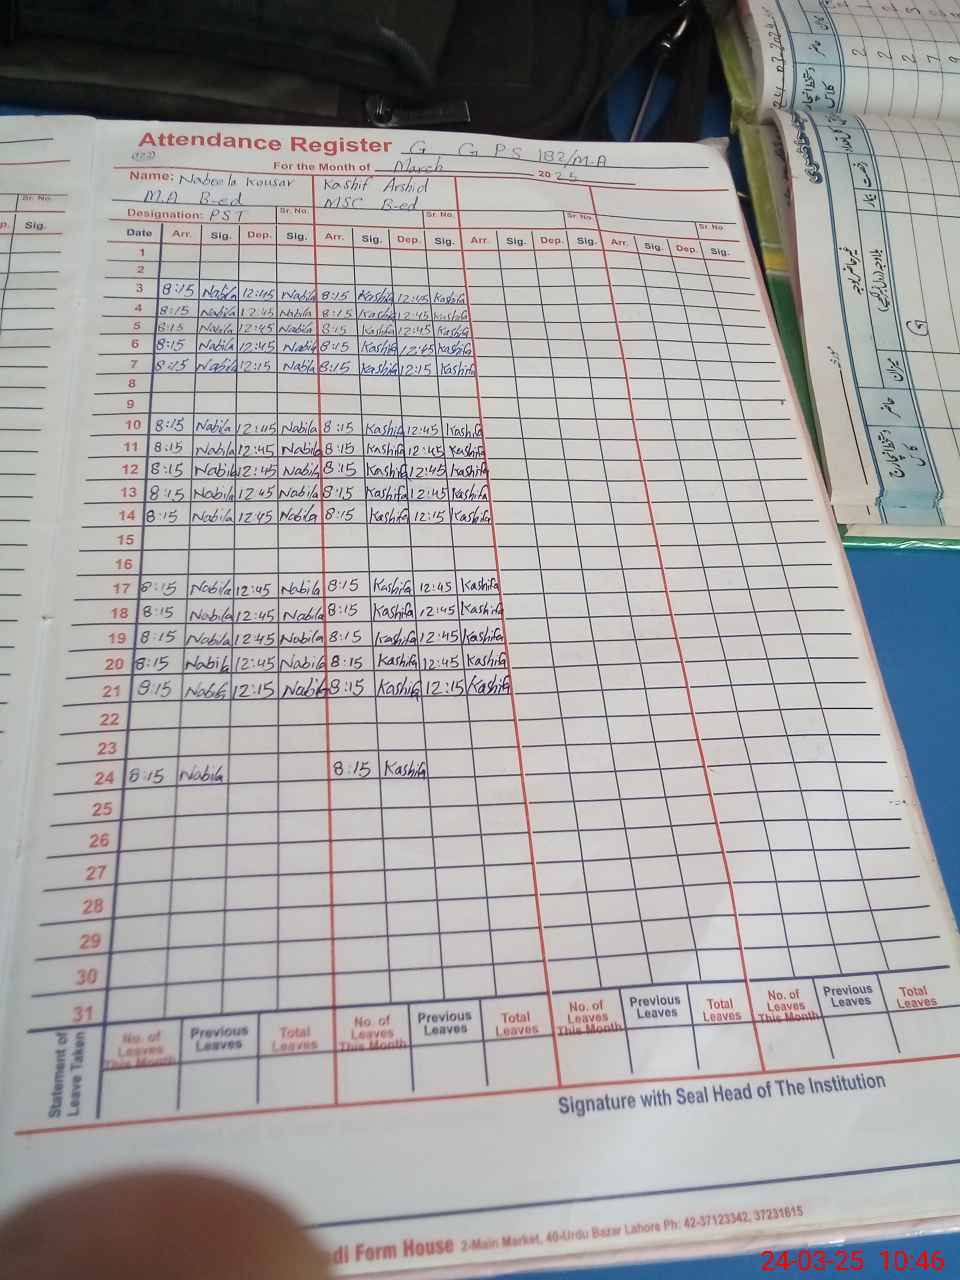 Attendance Register G G P S 182/M-A
For the Month of March 2025
Name: Nabeela Kousar Kashif Arshid
M.A B-ed MSC B-ed
Designation: PST Sr. No. Sr. No. Sr. No. Sr. No.
Date Arr. Sig. Dep. Sig. Arr. Sig. Dep. Sig. Arr. Sig. Dep. Sig. Arr. Sig. Dep. Sig.
1
2
3 8:15 Nabila 12:45 Nabila 8:15 Kashifa 12:45 Kashifa
4 8:15 Nabila 12:45 Nabila 8:15 Kashifa 12:45 Kashifa
5 8:15 Nabila 12:45 Nabila 8:15 Kashifa 12:45 Kashifa
6 8:15 Nabila 12:45 Nabila 8:15 Kashifa 12:45 Kashifa
7 8:15 Nabila 12:15 Nabila 8:15 Kashifa 12:15 Kashifa
8
9
10 8:15 Nabila 12:45 Nabila 8:15 Kashifa 12:45 Kashifa
11 8:15 Nabila 12:45 Nabila 8:15 Kashifa 12:45 Kashifa
12 8:15 Nabila 12:45 Nabila 8:15 Kashifa 12:45 Kashifa
13 8:15 Nabila 12:45 Nabila 8:15 Kashifa 12:45 Kashifa
14 8:15 Nabila 12:45 Nabila 8:15 Kashifa 12:15 Kashifa
15
16
17 8:15 Nabila 12:45 Nabila 8:15 Kashifa 12:45 Kashifa
18 8:15 Nabila 12:45 Nabila 8:15 Kashifa 12:45 Kashifa
19 8:15 Nabila 12:45 Nabila 8:15 Kashifa 12:45 Kashifa
20 8:15 Nabila 12:45 Nabila 8:15 Kashifa 12:45 Kashifa
21 8:15 Nabila 12:15 Nabila 8:15 Kashifa 12:15 Kashifa
22
23
24 8:15 Nabila 8:15 Kashifa
25
26
27
28
29
30
31
Statement of Leave Taken
No. of Leaves This Month Previous Leaves Total Leaves No. of Leaves This Month Previous Leaves Total Leaves No. of Leaves This Month Previous Leaves Total Leaves No. of Leaves This Month Previous Leaves Total Leaves
Signature with Seal Head of The Institution
di Form House 2-Main Market, 40-Urdu Bazar Lahore Ph: 42-37123342, 37231615
24-03-25 10:46
Sr. No.
p. Sig.